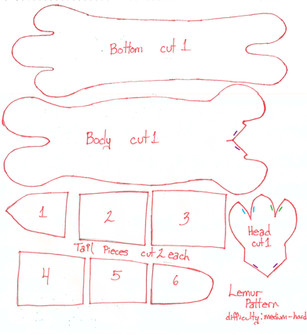 Bottom cut 1
Body cut 1
1 2 3
Tail Pieces cut 2 each
4 5 6
Head
cut 1
Lemur
Pattern
difficulty: medium-hard